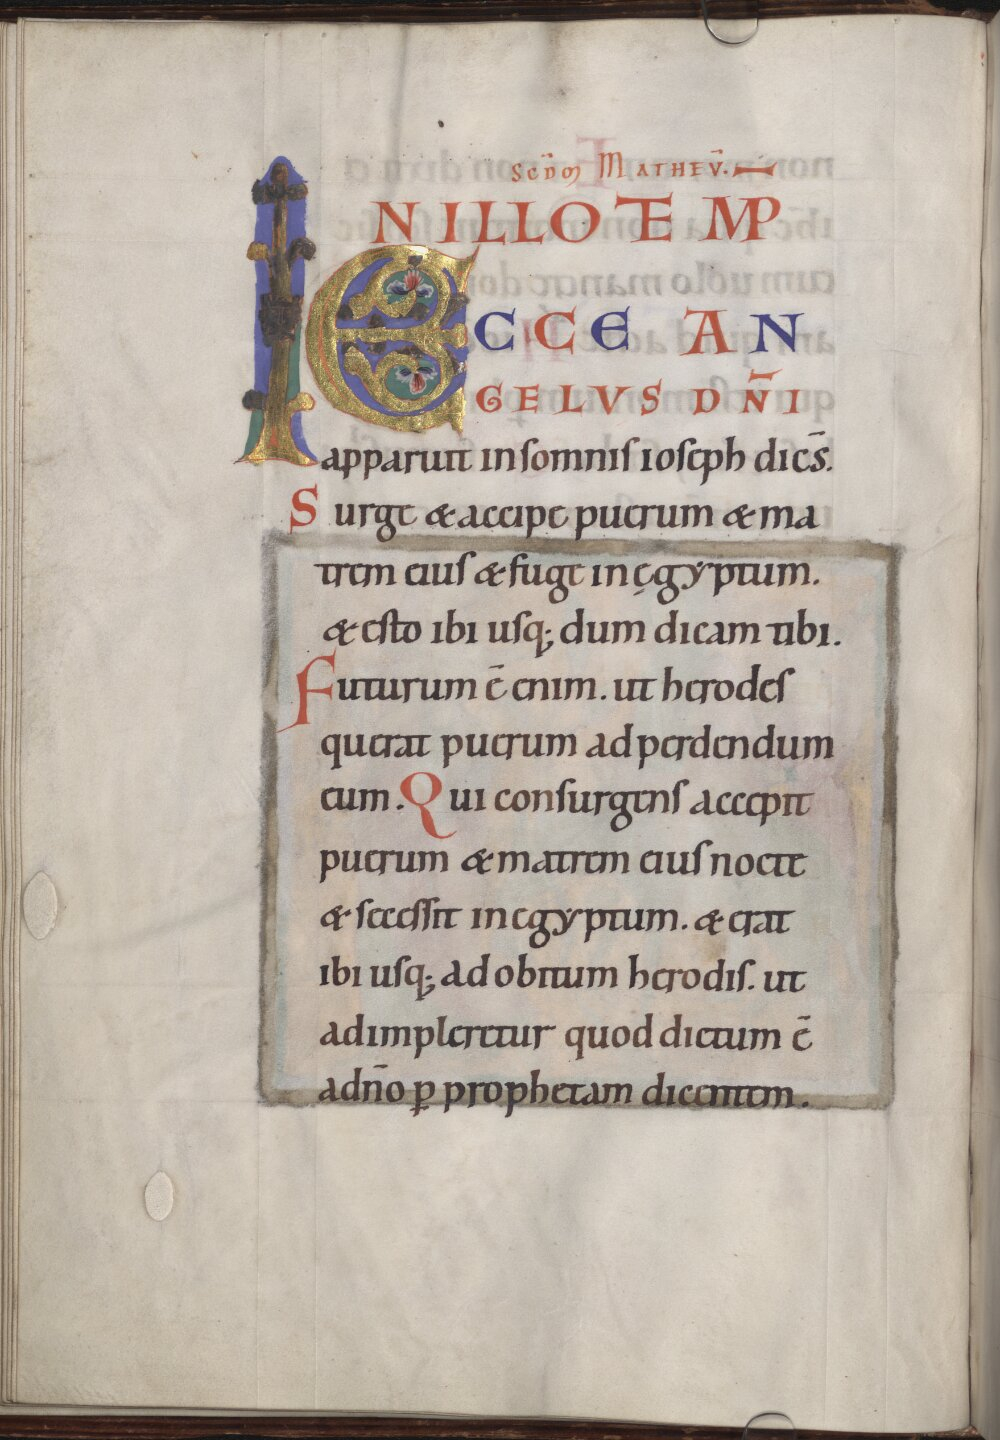 SCDM MATHEV̄.
IN ILLO TEMP
ECCE AN
GELVS DN̄I
apparuit in somnis ioseph dics̄.
Surge & accipe puerum & ma
trem eius & fuge in ęgyptum.
& esto ibi usq; dum dicam tibi.
Futurum ē enim. ut herodes
querat puerum ad perdendum
eum. Qui consurgens accepit
puerum & matrem eius nocte
& secessit in egyptum. & erat
ibi usq; ad obitum herodis. ut
adimpleretur quod dictum ē
a dn̄o ꝑ prophetam dicentem.